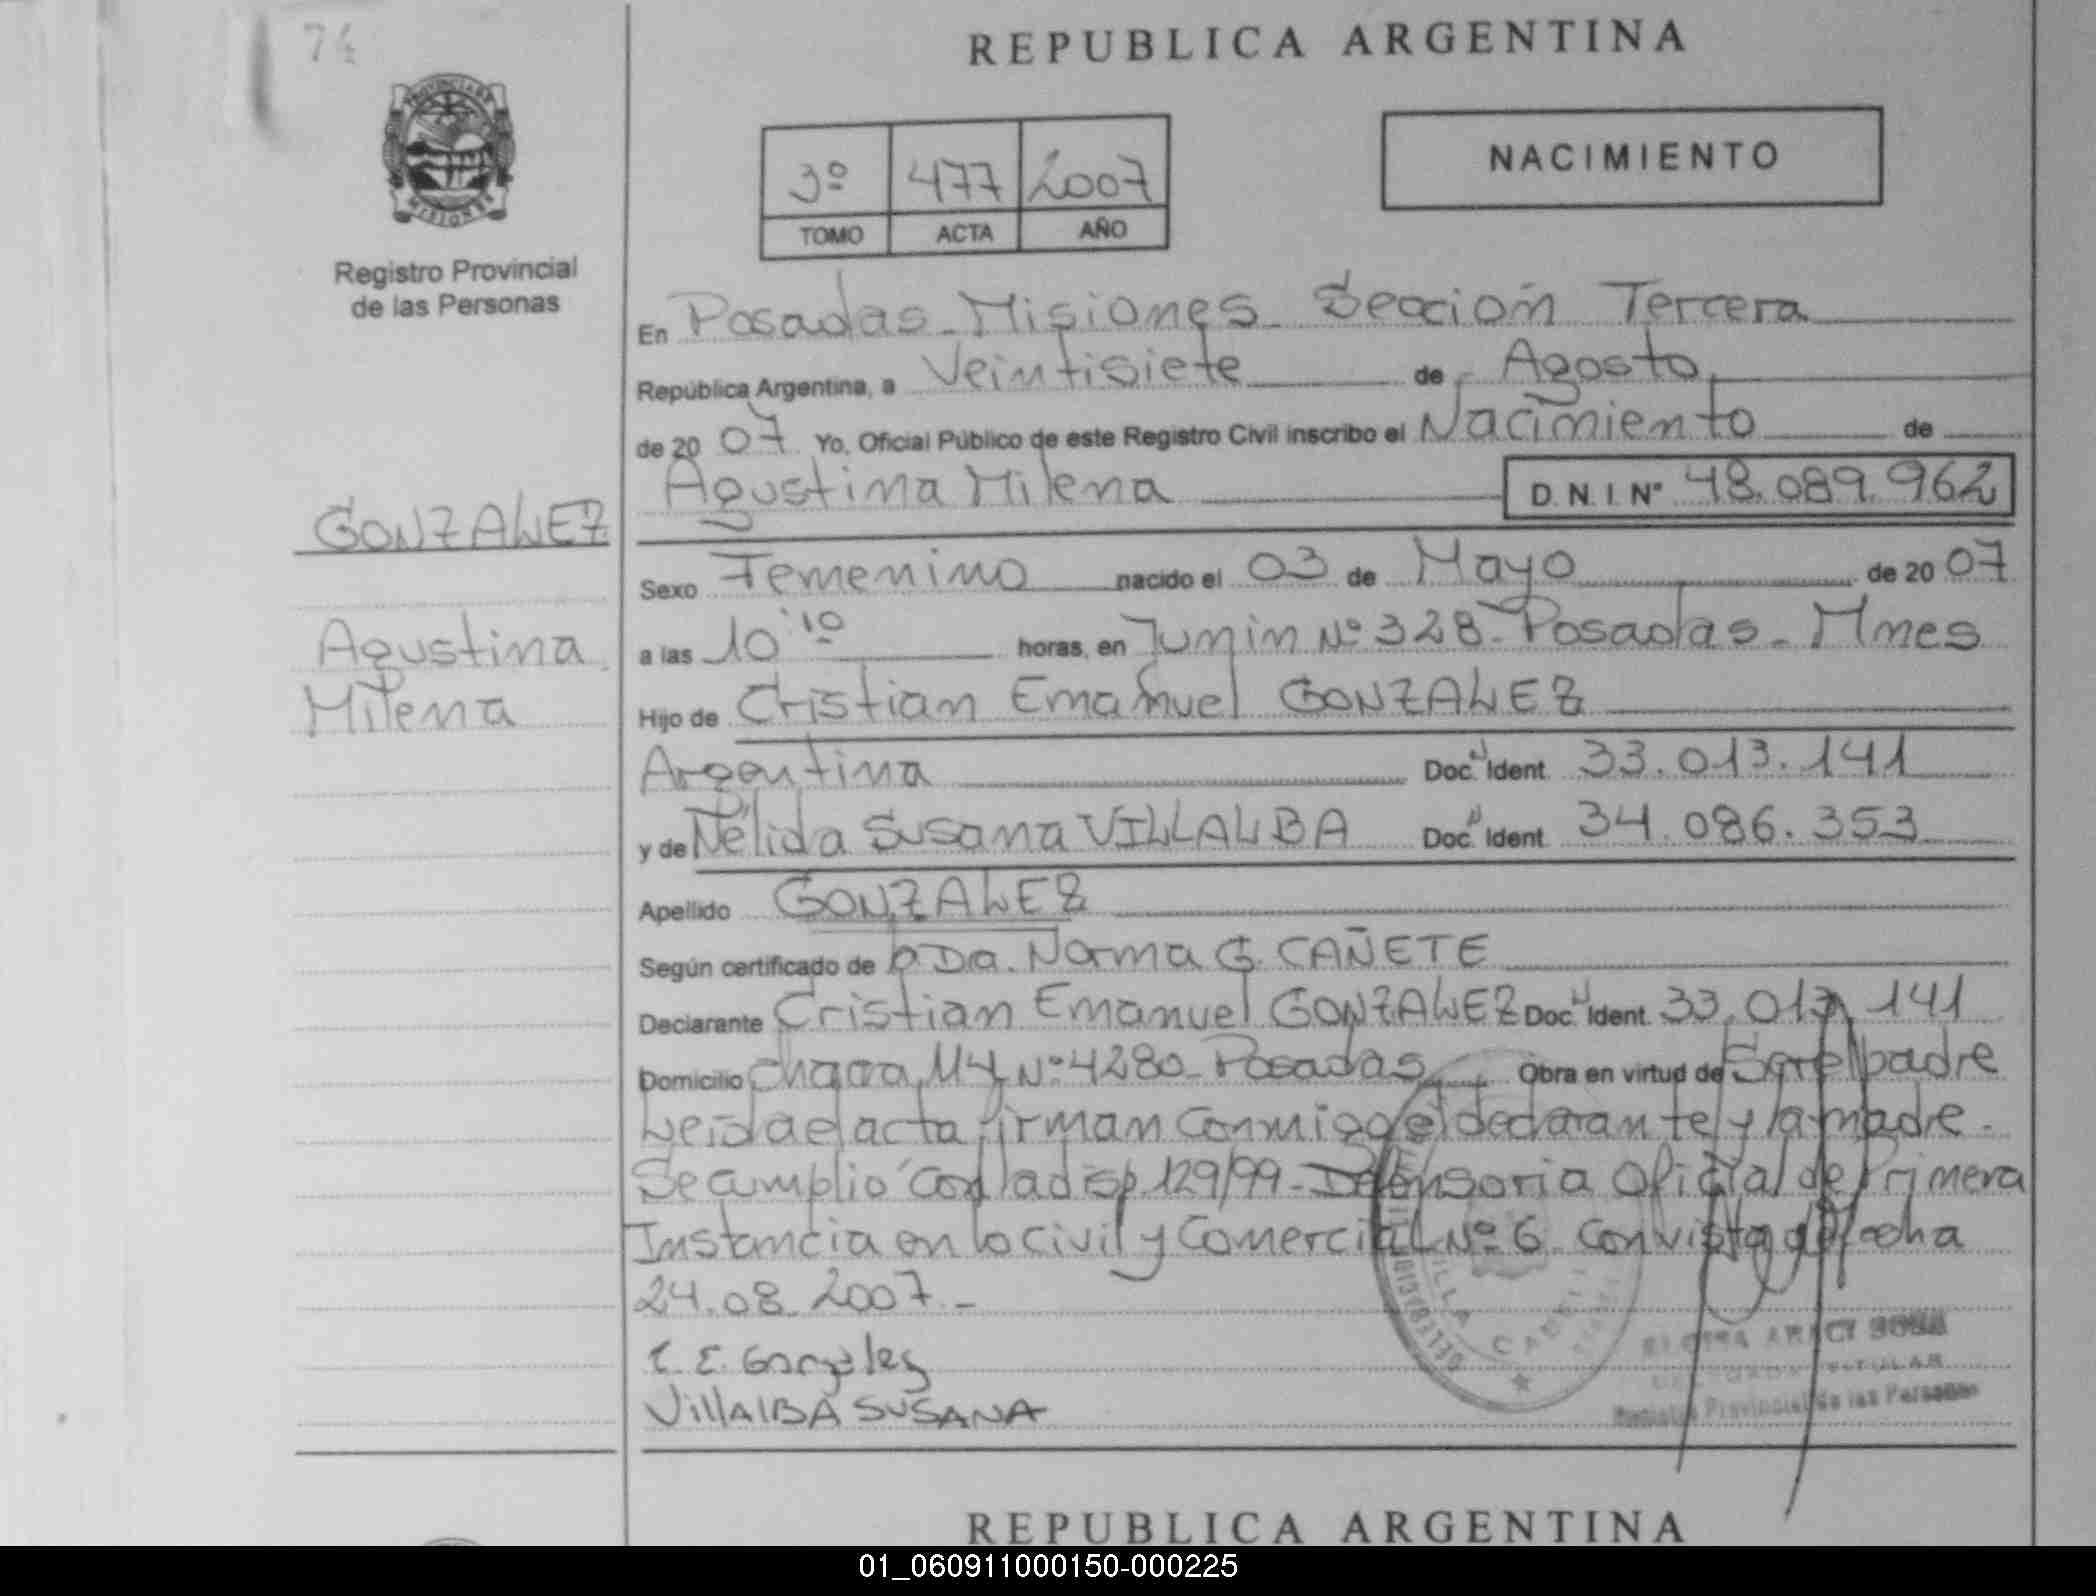 74
REPUBLICA ARGENTINA
PROVINCIA DE
MISIONES
Registro Provincial
de las Personas
3º 477 2007
TOMO ACTA AÑO
NACIMIENTO
En Posadas - Misiones - Sección Tercera
República Argentina, a Veintisiete de Agosto
de 2007 Yo, Oficial Público de este Registro Civil inscribo el Nacimiento de
Agustina Milena D.N.I. Nº 48.089.962
GONZALEZ
Agustina
Milena
Sexo Femenino nacido el 03 de Mayo de 2007
a las 10:10 horas, en Junin Nº 328 - Posadas - Mnes
Hijo de Cristian Emanuel GONZALEZ
Argentina Doc. Ident. 33.013.141
y de Nélida Susana VILLALBA Doc. Ident. 34.086.353
Apellido GONZALEZ
Según certificado de p Dra. Norma G. CAÑETE
Declarante Cristian Emanuel GONZALEZ Doc. Ident. 33.013.141
Domicilio Chacra 114 Nº 4280 - Posadas Obra en virtud de Ser el padre
Leida el acta firman conmigo el declarante y la madre.
Se cumplio con la disp. 129/99 - Defensoria Oficial de Primera
Instancia en lo Civil y Comercial Nº 6 con vista de fecha
24.08.2007.-
C. E. Gonzalez
VillALBA SUSANA
VILLA CABELLO
Registro Provincial de las Personas
REPUBLICA ARGENTINA
01_060911000150-000225